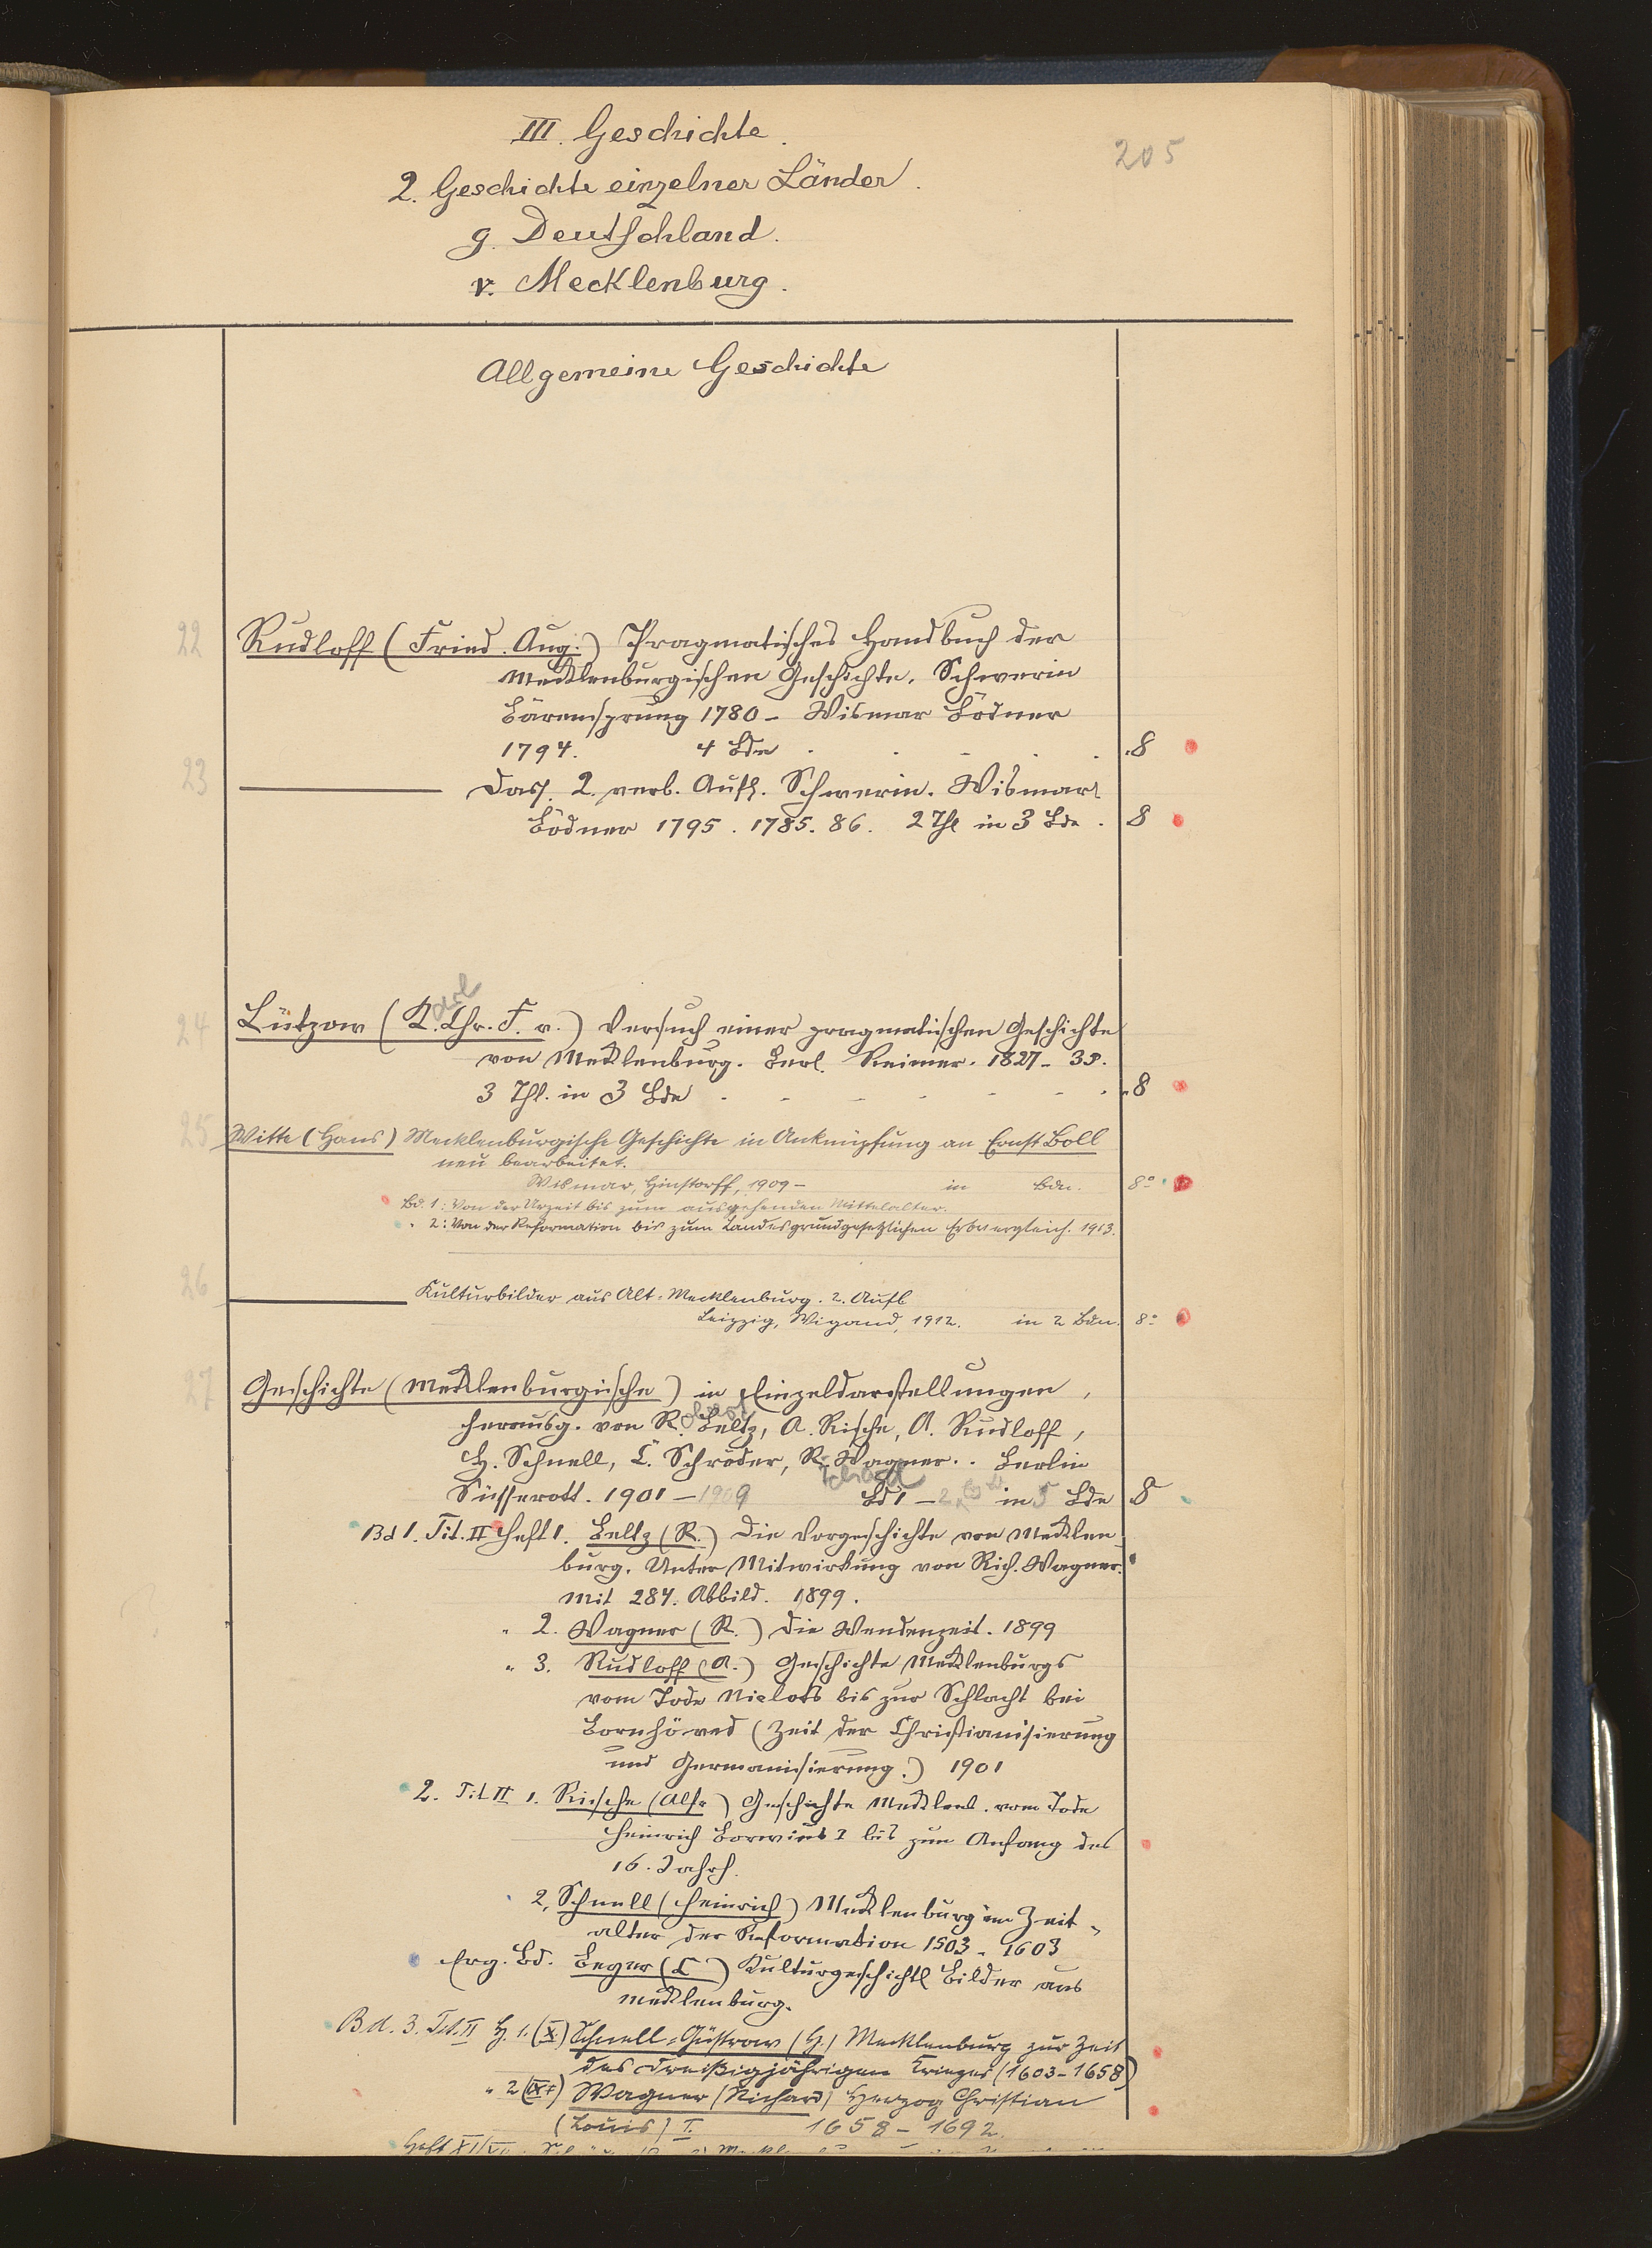 III. Geschichte.
205
2. Geschichte einzelner Länder.
g. Deutschland.
v. Mecklenburg.
Allgemeine Geschichte
22 Rudloff (Fried. Aug.) Pragmatisches Handbuch der
Mecklenburgischen Geschichte. Schwerin
Bärensprung 1780 - Wismar Bödner
1794. 4 Bde . . . . . 8
23 — Dass. 2. verb. Aufl. Schwerin. Wismar
Bödner 1795. 1785. 86. 2 Thl in 3 Bde. 8
24 Lützow (K. Chr. F. v.) Versuch einer pragmatischen Geschichte
von Mecklenburg. Berl. Reimer. 1827-35.
3 Thl. in 3 Bde - - - - - - 8
25 Witte (Hans) Mecklenburgische Geschichte in Anknüpfung an Ernst Boll
neu bearbeitet.
Wismar, Hinstorff, 1909 - in Bdn. 8°
Bd. 1: Von der Urzeit bis zum ausgehenden Mittelalter.
" 2: Von der Reformation bis zum Landesgrundgesetzlichen Erbvergleich. 1913.
26 — Kulturbilder aus Alt-Mecklenburg. 2. Aufl
Leipzig, Wigand, 1912. in 2 Bdn. 8°
27 Geschichte (Mecklenburgische) in Einzeldarstellungen,
herausg. von R. Beltz, A. Rische, A. Rudloff,
H. Schnell, C. Schröder, R. Wagner.. Berlin
Süsserott. 1901 - 1909 Bd 1 - 2 in 5 Bde 8
Bd 1. Tit. II Heft 1. Beltz (R.) Die Vorgeschichte von Mecklen-
burg. Unter Mitwirkung von Rich. Wagner.
Mit 284. Abbild. 1899.
" 2. Wagner (R.) Die Wendenzeit. 1899
" 3. Rudloff (A.) Geschichte Mecklenburgs
vom Tode Niclots bis zur Schlacht bei
Bornhöved (Zeit der Christianisierung
und Germanisierung.) 1901
2. Tit II 1. Rische (Alfr) Geschichte Mecklenb. vom Tode
Heinrich Borwins I bis zum Anfang des
16. Jahrh.
2. Schnell (Heinrich) Mecklenburg im Zeit-
alter der Reformation 1503 - 1603
Erg. Bd. Beyer (C) Kulturgeschichtl Bilder aus
Mecklenburg.
Bd. 3. Tit. II H. 1. (X.) Schnell-Güstrow (H.) Mecklenburg zur Zeit
des dreißigjährigen Krieges (1603-1658)
" 2 Wagner (Richard) Herzog Christian
(Louis) I. 1658 - 1692.
Heft XI/XII